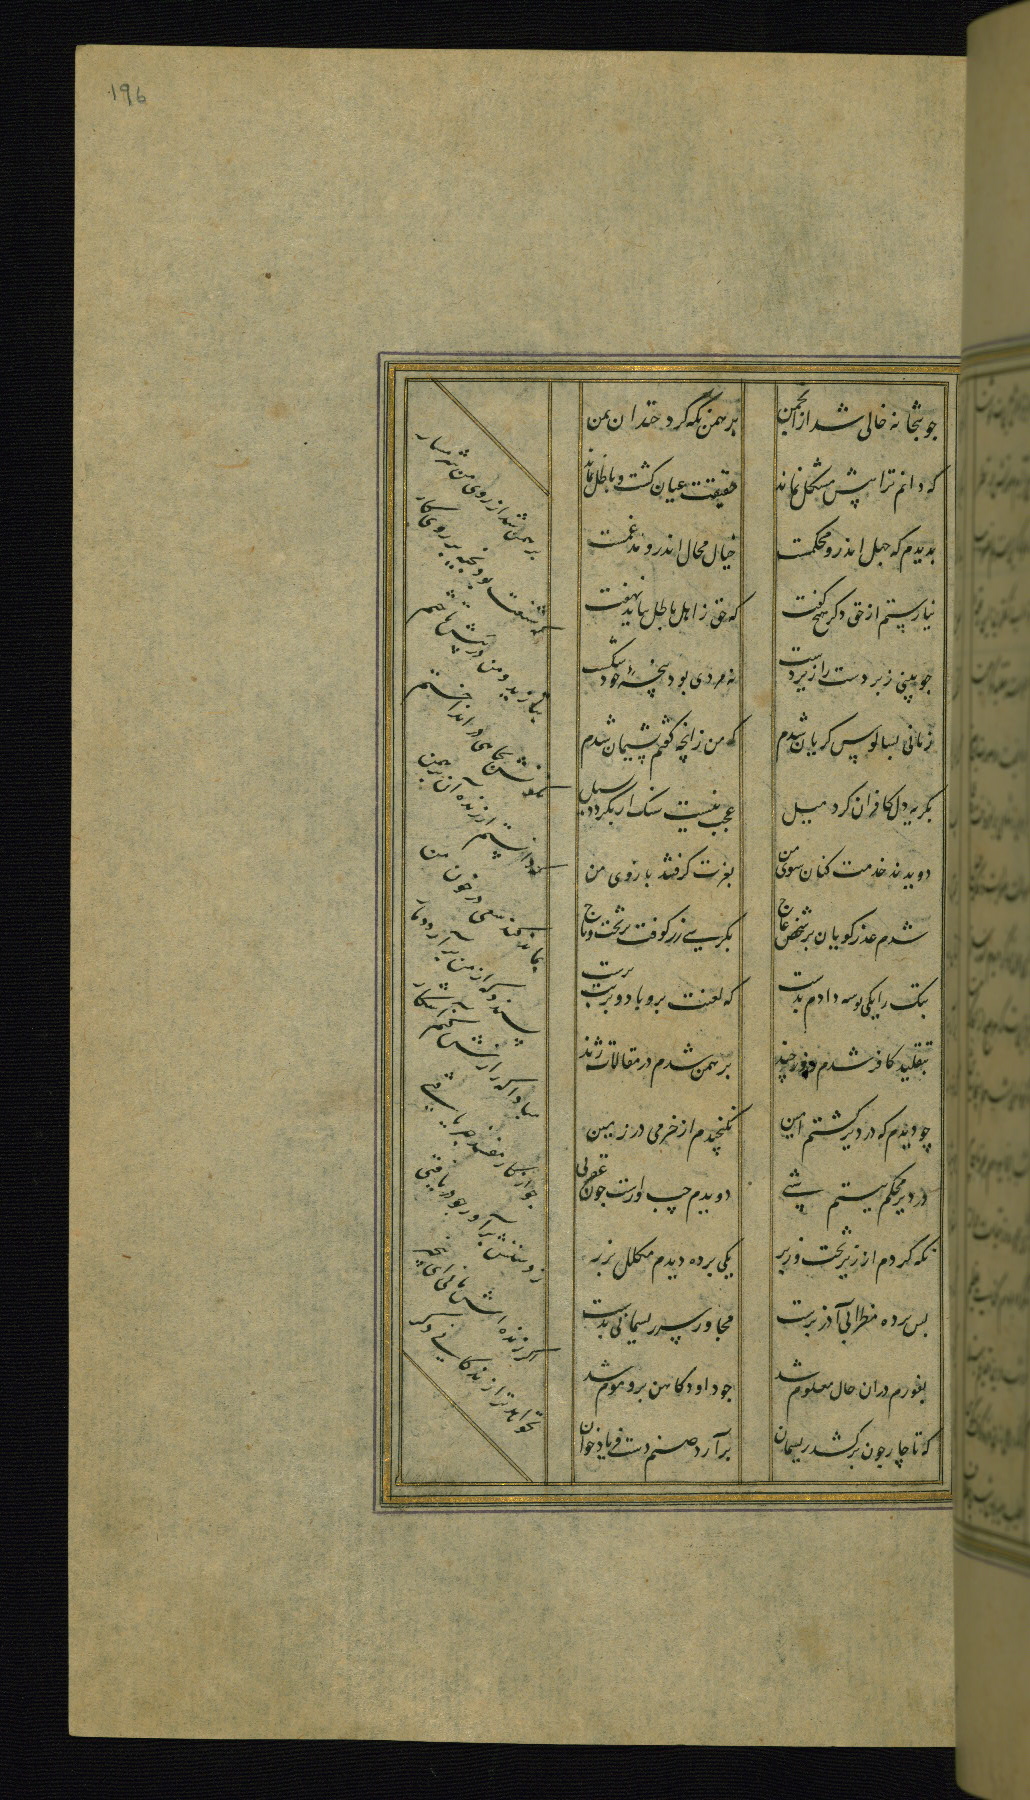 196
جو بتخانه خالی شد از انجمن
برهمن نکه کرد خندان بمن
که دانم ترا پیش مشکل نماند
حقیقت عیان کشت و باطل نماند
بدیدم که جهل اندرو محکمست
خیال محال اندرو مدغمست
نیارستم از حق دکر هیچ کفت
که حق ز اهل باطل بباید نهفت
جو بینی زبر دست را زیر دست
نه مردی بود پنجهٔ خود شکست
زمانی بسالوس کریان شدم
که من زانچه کفتم پشیمان شدم
بکریه دل کافران کرد میل
عجب نیست سنک ار بکردد بسیل
دویدند خدمت کنان سوی من
بعزت کرفتند بازوی من
شدم عذر کویان بر شخص عاج
بکرسی زر کوفت بر تخت و تاج
بتک را یکی بوسه دادم بدست
که لعنت برو باد و بر بت پرست
بتقلید کافر شدم روز چند
برهمن شدم در مقالات ژند
چو دیدم که در دیر کشتم امین
نکنجیدم از خرمی در زمین
در دیر محکم ببستم شبی
دویدم چپ و راست جون عقربی
نکه کردم از زیر تخت و زبر
یکی برده دیدم مکلل بزر
بس برده مطرانی آذر برست
مجاور سر ریسمانی بدست
بفورم دران حال معلوم شد
جو داود کاهن برو موم شد
که ناچار جون بر کشد ریسمان
برآرد صنم دست فریاد خوان
برهمن شد از روی من شرمسار
که شنعت بود بخیه بر روی کار
بتازید و من در پیش تاختم
نکونش بجاهی در انداختم
که دانستم ار زنده آن برهمن
بماند کند سعی در خون من
پسندد که از من برآرد دمار
مبادا که رازش کنم آشکار
جو از کار مفسد خبر یافتی
ز دستش برآور جو دریافتی
که کر زنده اش مانی آن بی هنر
نخواهد ترا زندکانی دکر